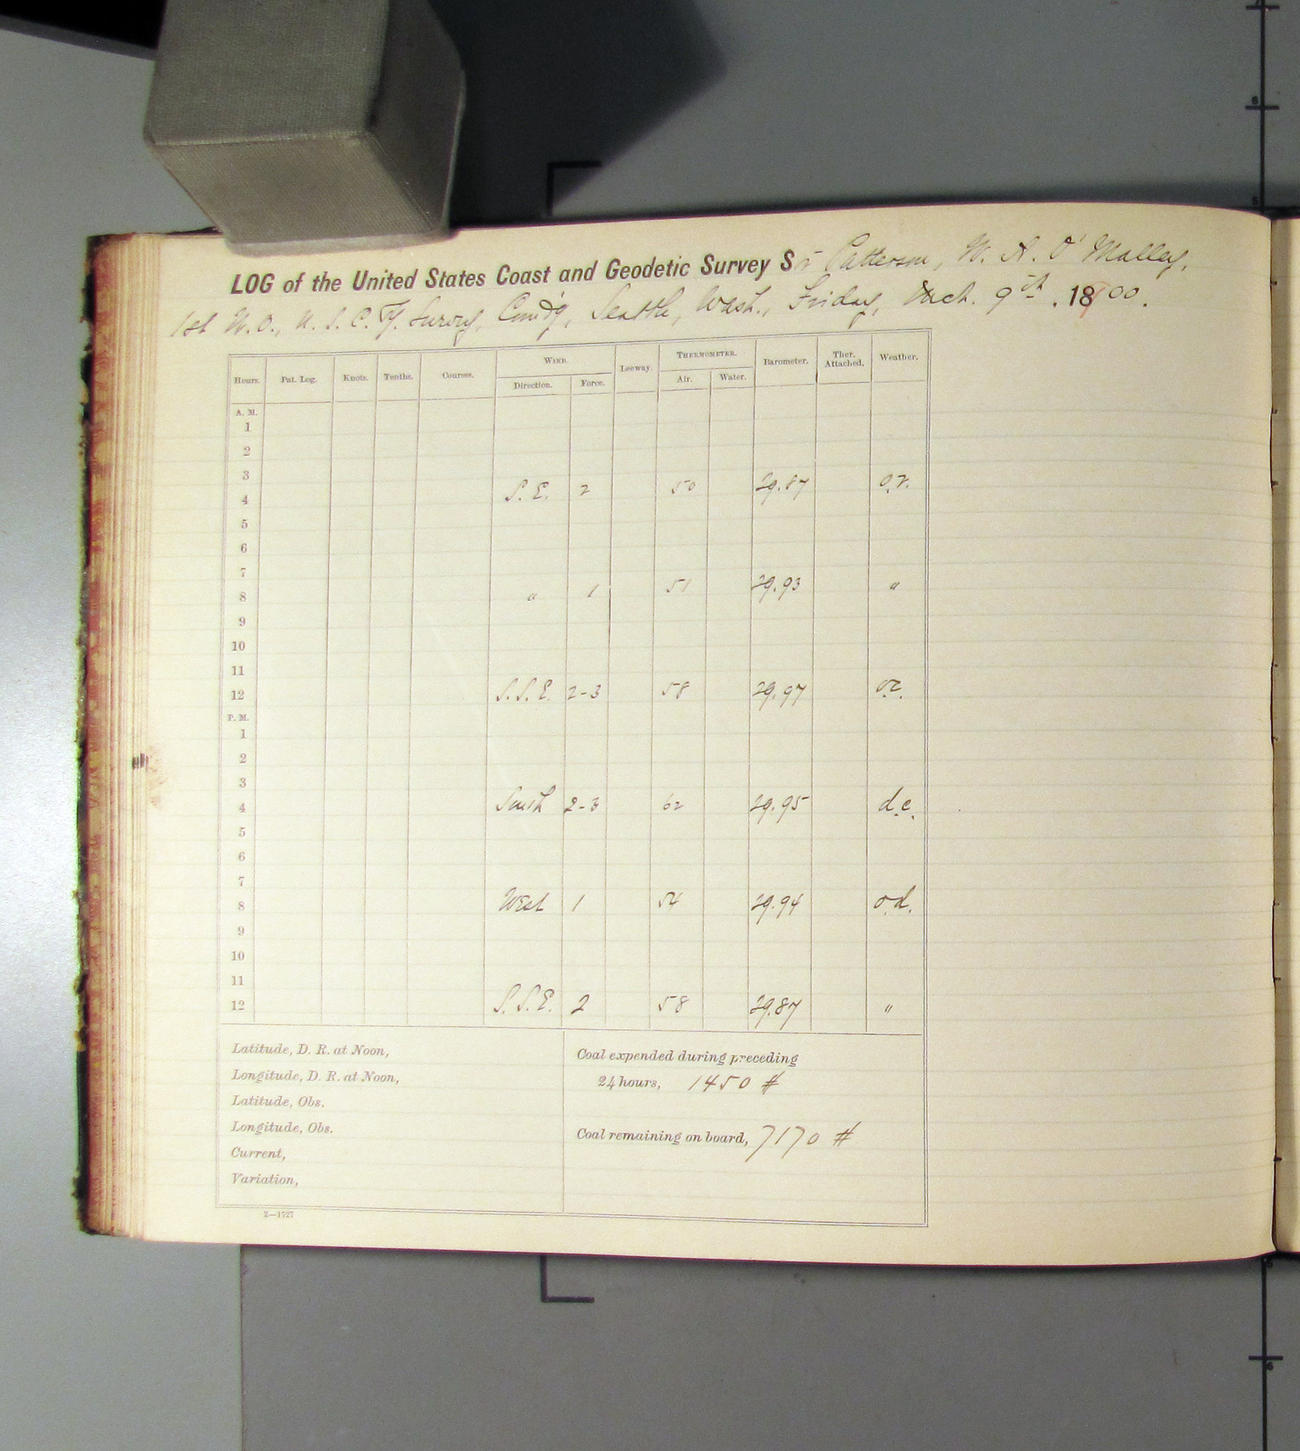 LOG of the United States Coast and Geodetic Survey Str Patterson, W. A. O' Malley,
1st W.O., U. S. C. & G. Survey, Com'd'g, Seattle, Wash., Friday, Mch. 9th, 1900.
Hours. Pat. Log. Knots. Tenths. Courses. WIND. Leeway. THERMOMETER. Barometer. Ther. Attached. Weather.
Direction. Force. Air. Water.
A. M.
1
2
3
4 S. E. 2 50 29.87 o.r.
5
6
7
8 " 1 51 29.93 "
9
10
11
12 S. S. E. 2-3 58 29.97 o.c.
P. M.
1
2
3
4 South 2-3 62 29.95 d.c.
5
6
7
8 West 1 54 29.94 o.d.
9
10
11
12 S. S. E. 2 58 29.87 "
Latitude, D. R. at Noon,
Longitude, D. R. at Noon,
Latitude, Obs.
Longitude, Obs.
Current,
Variation,
Coal expended during preceding
24 hours, 1450 #
Coal remaining on board, 7170 #
Z—1727